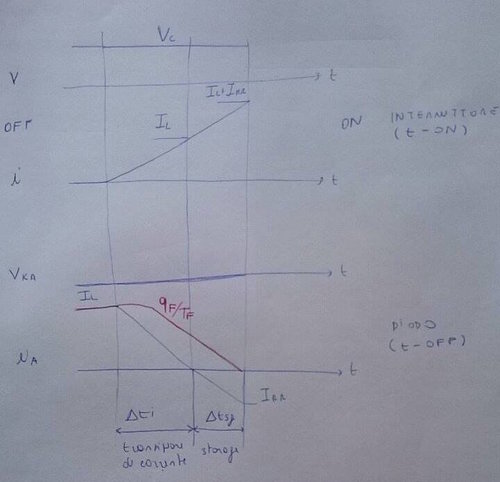 Vc
V t
IL+IRR
OFF IL ON INTERRUTTORE
(t-ON)
i t
VKA t
IL
qF/TF
DIODO
(t-OFF)
iA t
IRR
Δti Δtsg
transizione storage
di corrente